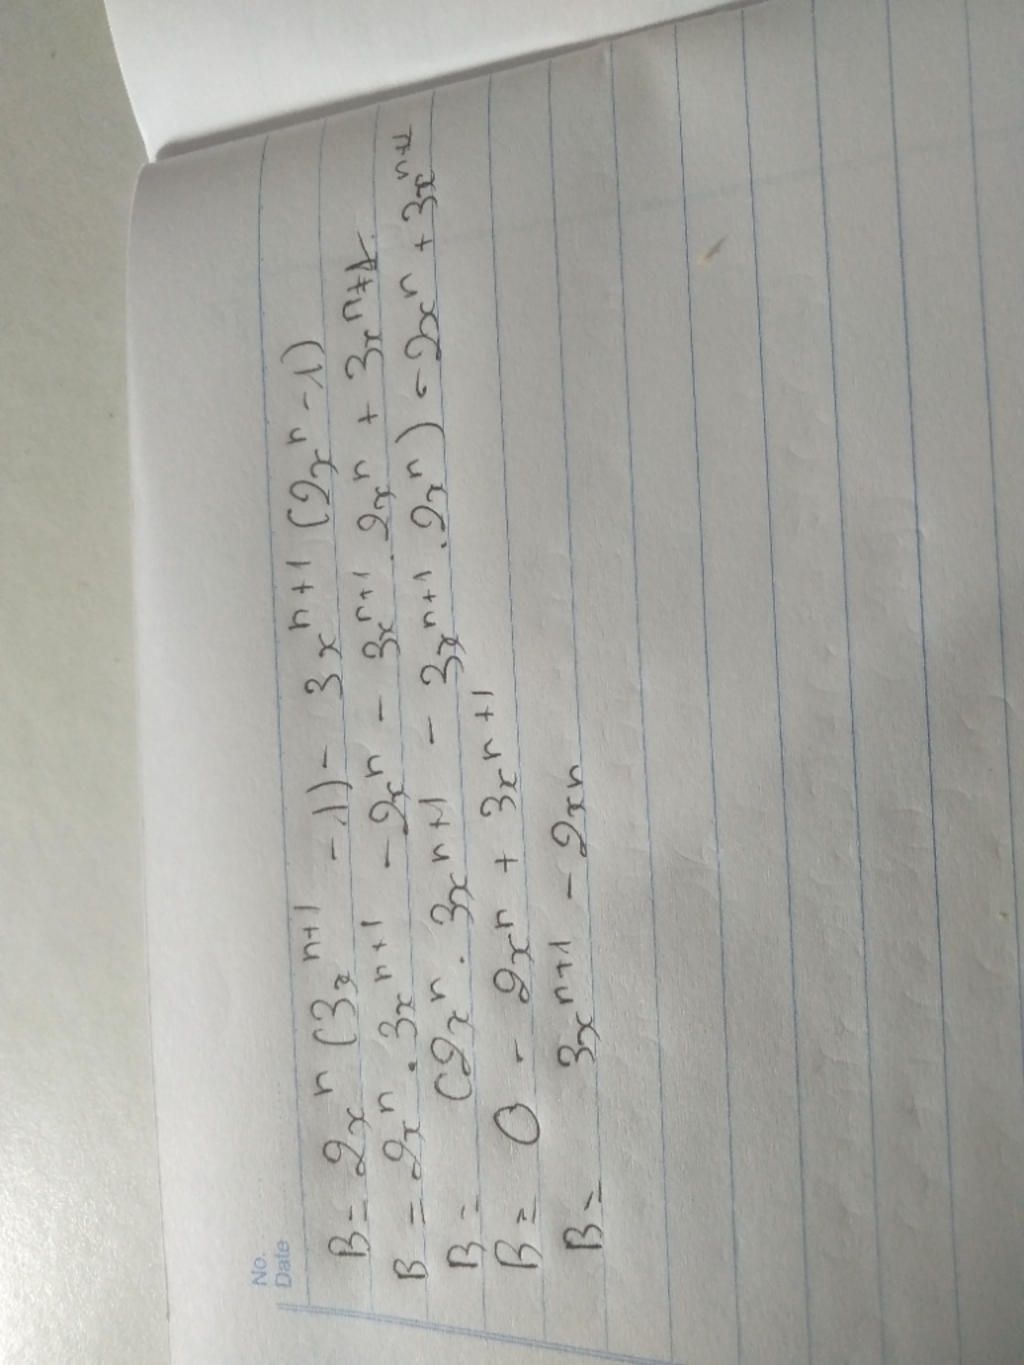 No.
Date
B = 2xⁿ (3xⁿ⁺¹ - 1) - 3xⁿ⁺¹ (2xⁿ - 1)
B = 2xⁿ . 3xⁿ⁺¹ - 2xⁿ - 3xⁿ⁺¹ . 2xⁿ + 3xⁿ⁺¹.
B = (2xⁿ . 3xⁿ⁺¹ - 3xⁿ⁺¹ . 2xⁿ) - 2xⁿ + 3xⁿ⁺¹
B = 0 - 2xⁿ + 3xⁿ⁺¹
B = 3xⁿ⁺¹ - 2xn